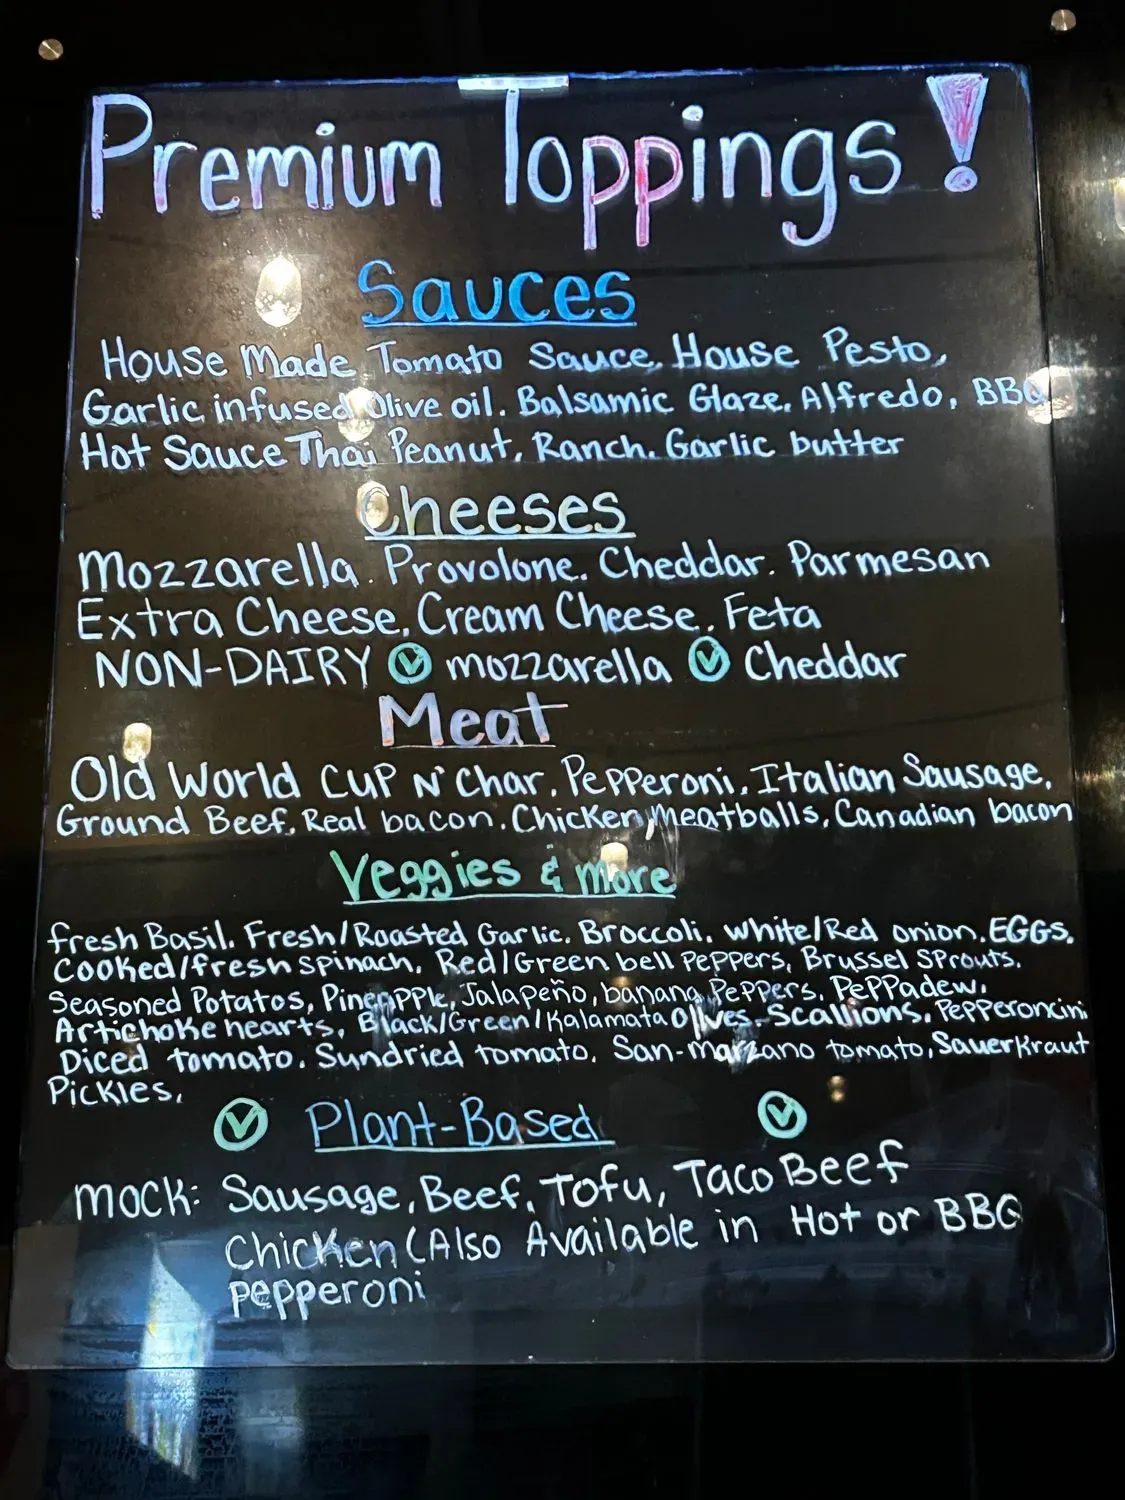 Premium Toppings!
Sauces
House Made Tomato Sauce, House Pesto,
Garlic infused Olive oil. Balsamic Glaze. Alfredo, BBQ
Hot Sauce Thai Peanut, Ranch. Garlic butter
Cheeses
Mozzarella. Provolone. Cheddar. Parmesan
Extra Cheese. Cream Cheese. Feta
NON-DAIRY ✓ mozzarella ✓ Cheddar
Meat
Old World CUP N' Char. Pepperoni. Italian Sausage.
Ground Beef. Real bacon. Chicken, Meatballs. Canadian bacon
Veggies & more
fresh Basil. Fresh/Roasted Garlic. Broccoli. White/Red onion. EGGS.
Cooked/fresh spinach. Red/Green bell Peppers. Brussel Sprouts.
Seasoned Potatos, Pineapple, Jalapeño, banana Peppers. Peppadew.
Artichoke hearts. Black/Green/Kalamata Olives. Scallions. Pepperoncini
Diced tomato. Sundried tomato. San-marzano tomato. Sauerkraut
Pickles.
✓ Plant-Based ✓
MOCK: Sausage. Beef. Tofu, Taco Beef
Chicken (Also Available in Hot or BBQ
pepperoni